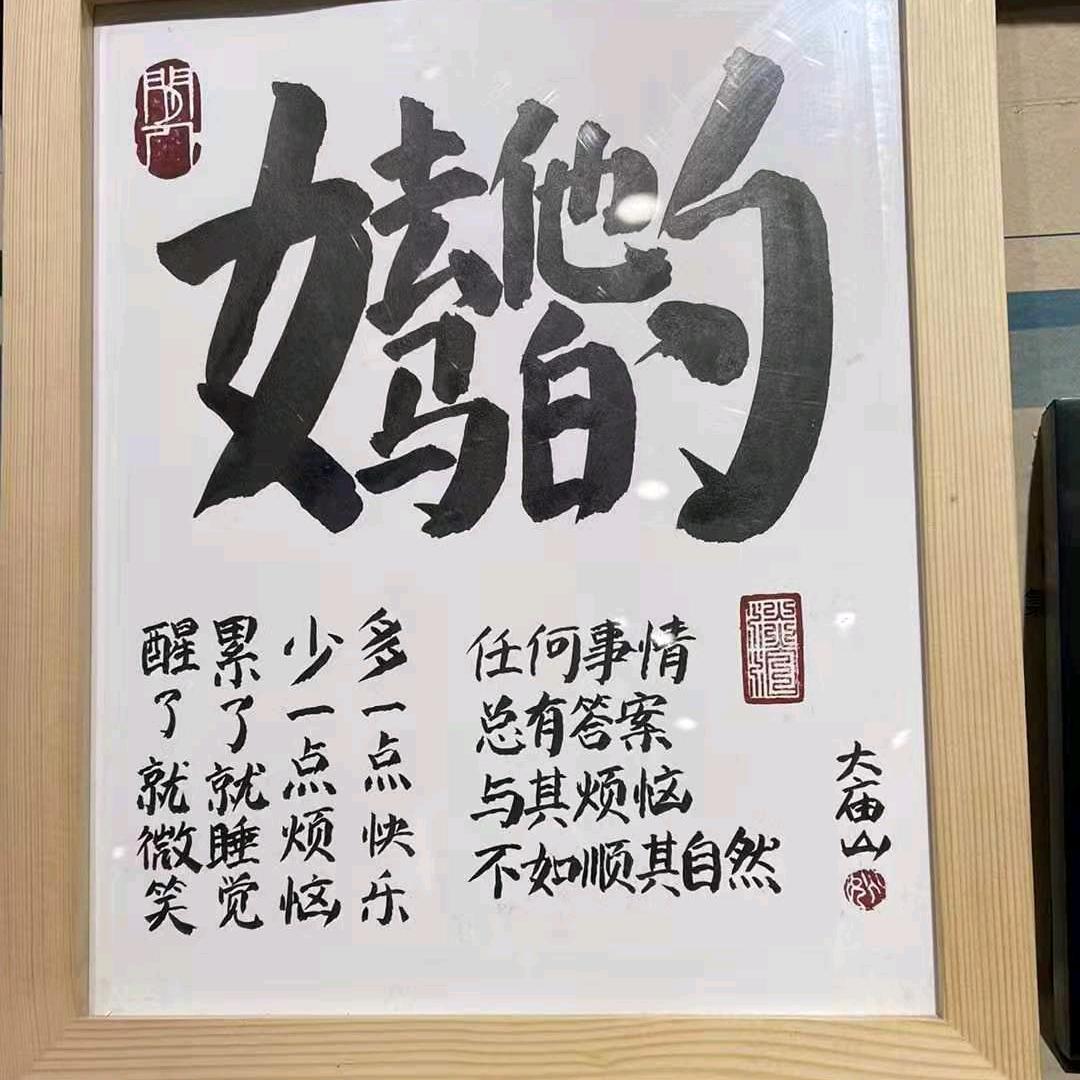 去他妈的
多一点快乐
少一点烦恼
累了就睡觉
醒了就微笑
任何事情
总有答案
与其烦恼
不如顺其自然
大庙山